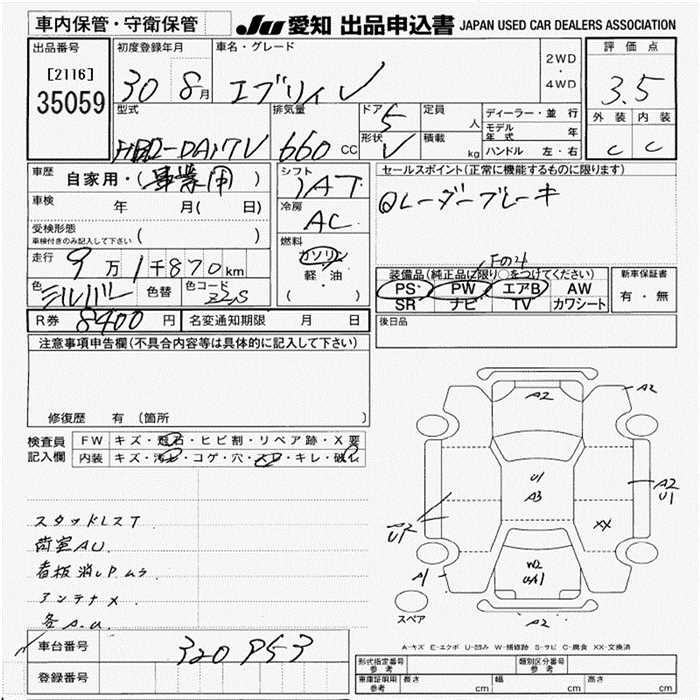 車内保管・守衛保管
JU 愛知 出品申込書 JAPAN USED CAR DEALERS ASSOCIATION
出品番号
[2116]
35059
初度登録年月
30 8月
車名・グレード
エブリィ V
2WD
・
4WD
評価点
3.5
外装 内装
C C
型式
HBD-DA17V
排気量
660 CC
ドア 5
形状 V
定員 人
積載 kg
ディーラー・並行
モデル年式 年
ハンドル 左・右
車歴 自家用・(事業用)
車検 年 月( 日)
受検形態
車検付きのみ記入して下さい ( )
走行 9万1千870km
色 シルバー 色替 色コード Z2S
R券 8400円 名変通知期限 月 日
シフト
IAT
冷房
AC
燃料
ガソリン
軽・油
( ・ )
セールスポイント(正常に機能するものに限ります)
Qレーダーブレーキ
装備品(純正品に限り○をつけてください)
PS・ PW・ エアB AW
SR ナビ TV カワシート
新車保証書
有・無
後日品
注意事項申告欄(不具合内容等は具体的に記入して下さい)
修復歴 有 (箇所 )
検査員
記入欄
FW キズ・飛石・ヒビ割・リペア跡・X要
内装 キズ・汚れ・コゲ・穴・スレ・キレ・破レ
スタッドレスT
荷室AU
看板消しPムラ
アンテナX
各A.U
A2
A2
U1
A3
A2
U1
A2
U1
XX
W2
A1
A2
スペア
A-キズ E-エクボ U-凹み W-補修跡 S-サビ C-腐食 XX-交換済
車台番号 320953
登録番号
形式指定番号
参考
類別区分番号
参考
車庫証明用
参考
長さ cm 幅 cm 高さ cm